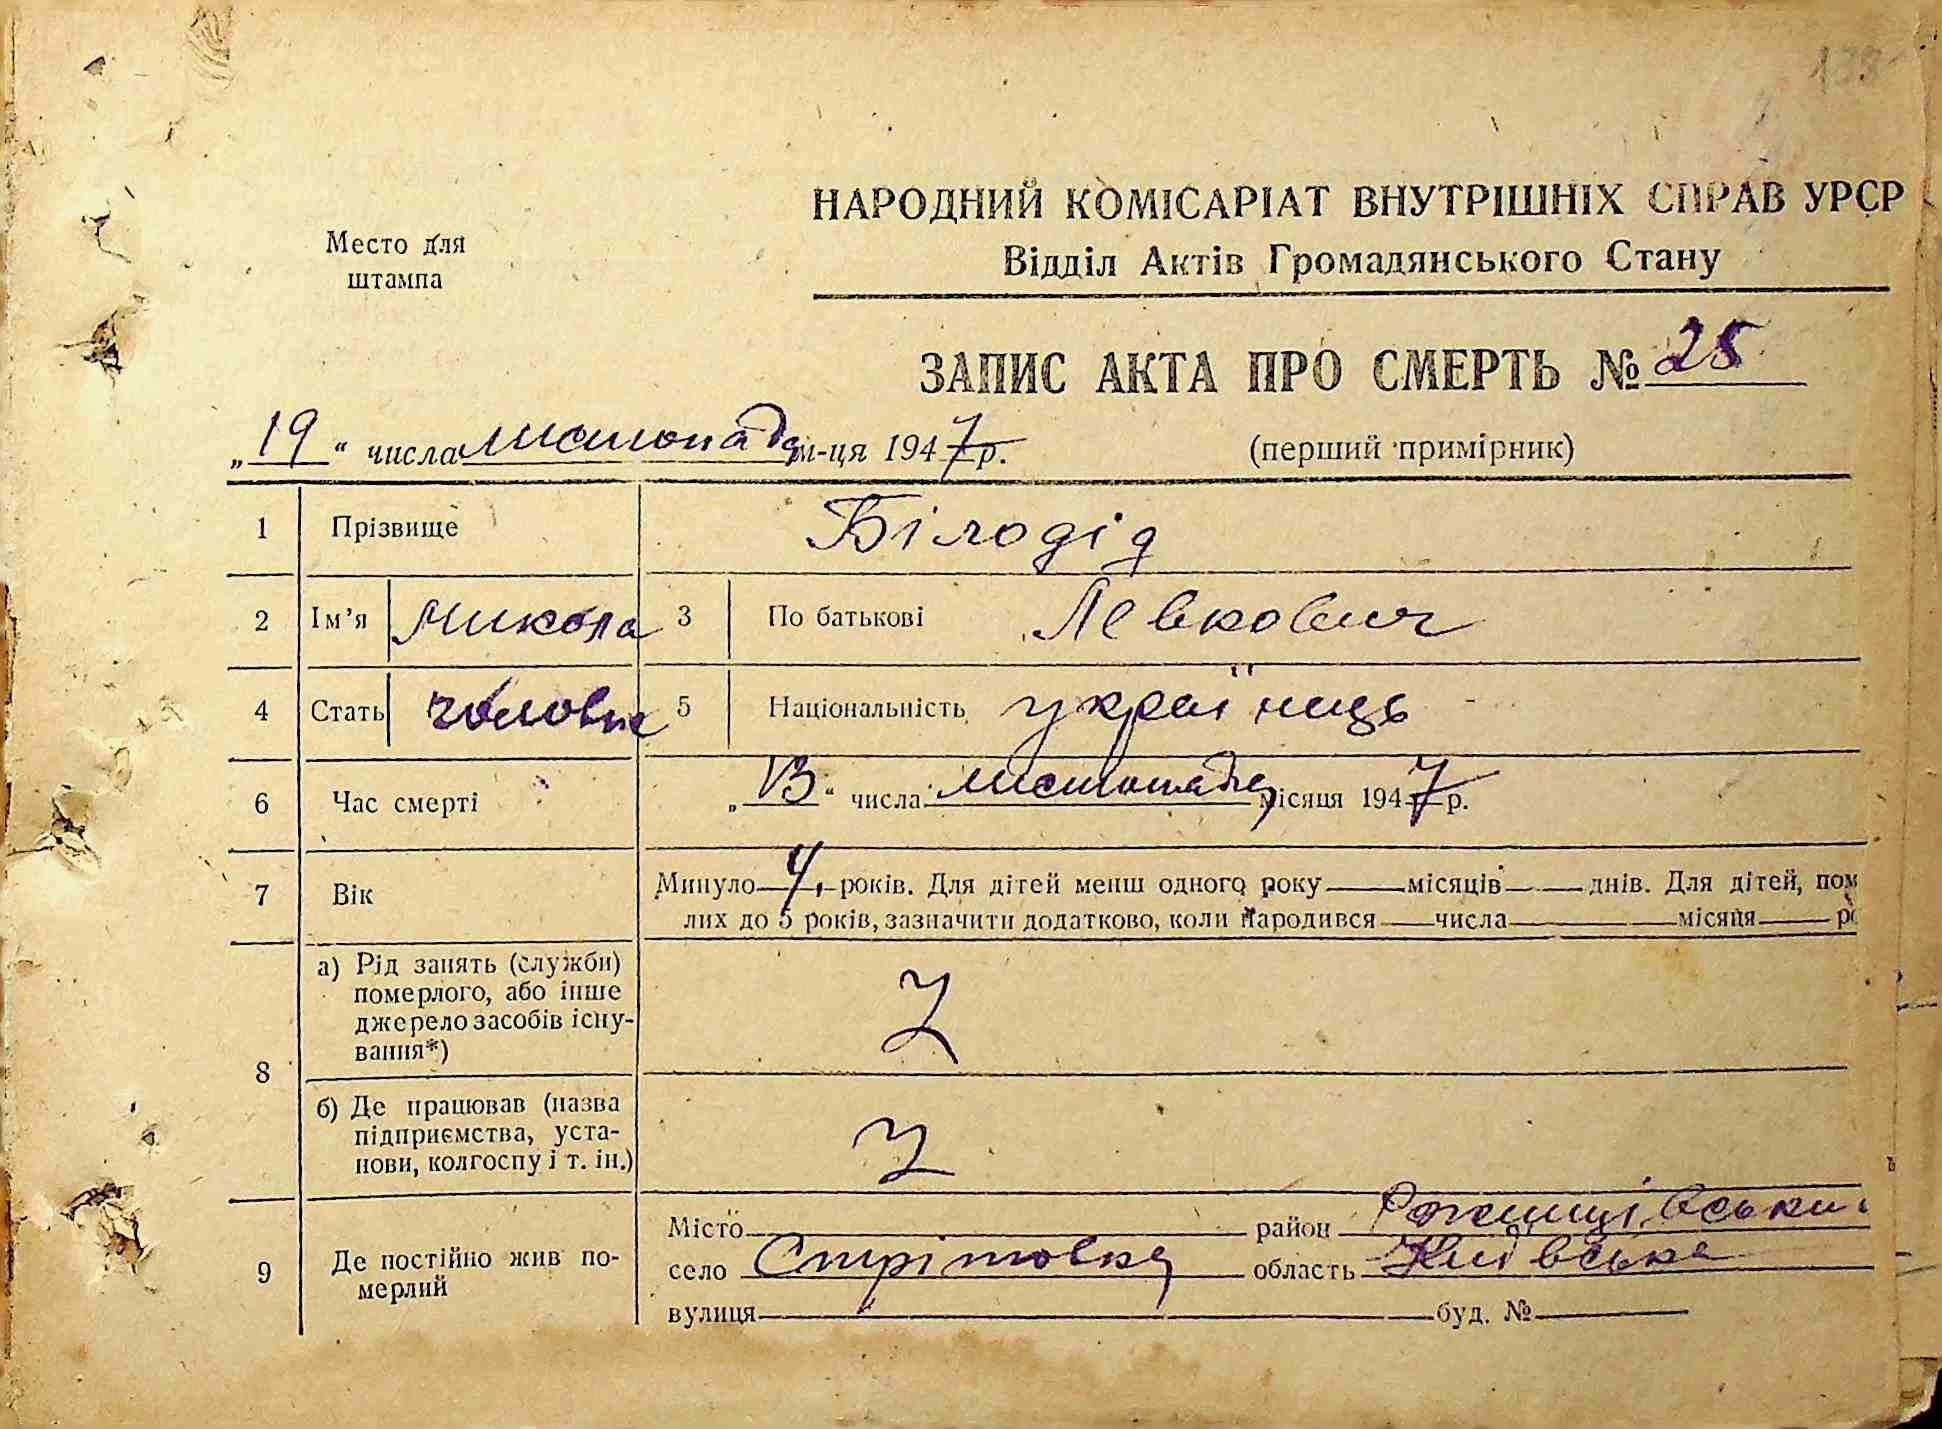 138
НАРОДНИЙ КОМІСАРІАТ ВНУТРІШНІХ СПРАВ УРСР
Место для
штампа
Відділ Актів Громадянського Стану
ЗАПИС АКТА ПРО СМЕРТЬ № 25
„19“ числа листопада м-ця 1947 р.
(перший примірник)
1 Прізвище Білодід
2 Ім’я Микола 3 По батькові Левкович
4 Стать чоловіча 5 Національність українець
6 Час смерті „13“ числа листопада місяця 1947 р.
7 Вік Минуло 4 років. Для дітей менш одного року місяців днів. Для дітей, пом
лих до 5 років, зазначити додатково, коли народився числа місяця ро
8 а) Рід занять (служби)
померлого, або інше
джерело засобів існу-
вання*)
б) Де працював (назва
підприємства, уста-
нови, колгоспу і т. ін.)
9 Де постійно жив по-
мерлий
Місто район Ржищівськи
село Стрітовка область Київська
вулиця буд. №